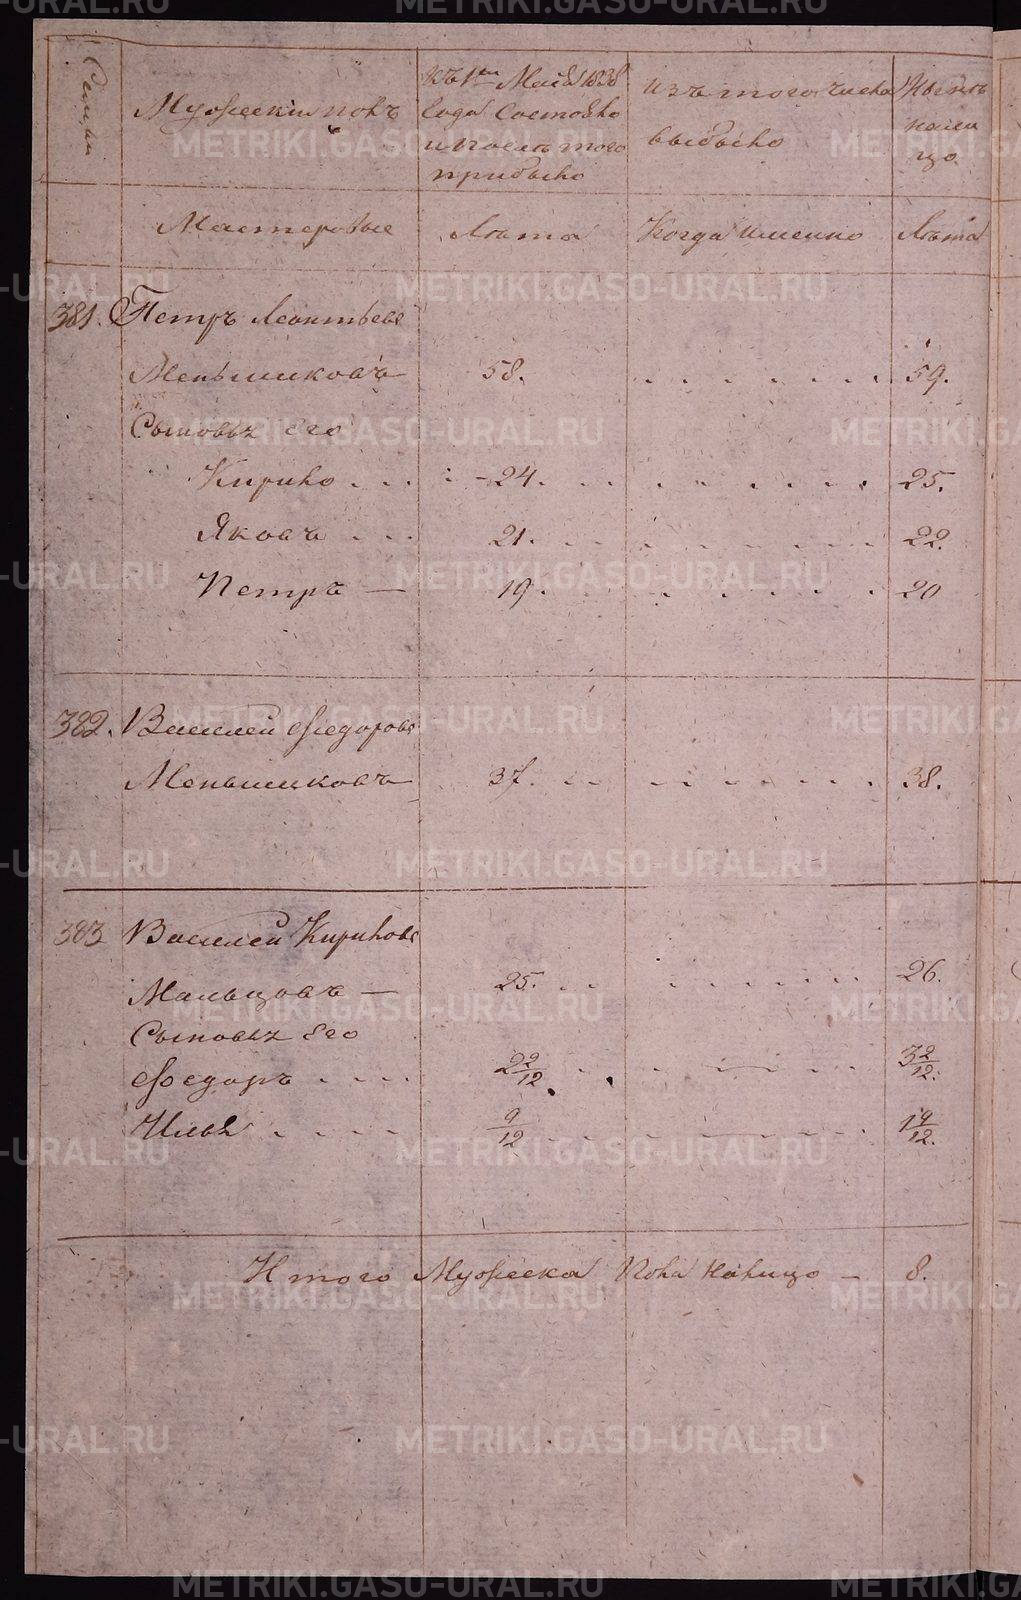 Семьи
Мужескій полъ
Къ 1му Маія 1838
года Состояло
и после того
прибыло
Изъ того числа
выбыло
Ныне
нали
цо
Мастеровые
Лѣта
Когда именно
Лѣта
381. Петръ Леонтьевъ
Меньшиковъ 58. 59.
Сыновья Его
Кирило 24. 25.
Яковъ 21. 22.
Петръ — 19. 20
382. Василей Федоровъ
Меньшиковъ 37. 38.
383 Василей Кириловъ
Мальцовъ — 25. 26.
Сыновья Его
Федоръ 2 2/12 3 2/12.
Илья 9/12 1 9/12.
Итого Мужеска Пола налицо — 8.
METRIKI.GASO-URAL.RU